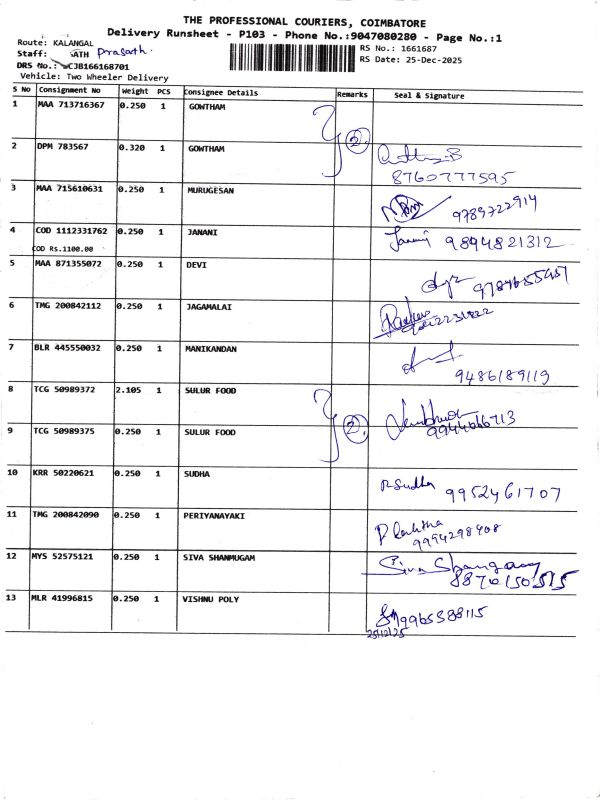 THE PROFESSIONAL COURIERS, COIMBATORE
Delivery Runsheet - P103 - Phone No.:9047080280 - Page No.:1
Route: KALANGAL
RS No.: 1661687
Staff: ATH Prasath.
RS Date: 25-Dec-2025
DRS No.: CJB166168701
Vehicle: Two Wheeler Delivery
S No Consignment No Weight PCS Consignee Details Remarks Seal & Signature
1 MAA 713716367 0.250 1 GOWTHAM
2
2 DPM 783567 0.320 1 GOWTHAM
8760777595
3 MAA 715610631 0.250 1 MURUGESAN
9789722914
4 COD 1112331762 0.250 1 JANANI Janani 9894821312
COD Rs.1100.00
5 MAA 871355072 0.250 1 DEVI
6 TMG 200842112 0.250 1 JAGAMALAI
7 BLR 445550032 0.250 1 MANIKANDAN
9486189119
8 TCG 50989372 2.105 1 SULUR FOOD
2
9 TCG 50989375 0.250 1 SULUR FOOD
10 KRR 50220621 0.250 1 SUDHA R Sudha 9952461707
11 TMG 200842090 0.250 1 PERIYANAYAKI
9994298408
12 MYS 52575121 0.250 1 SIVA SHANMUGAM
8870150515
13 MLR 41996815 0.250 1 VISHNU POLY
9965388115
25/12/25